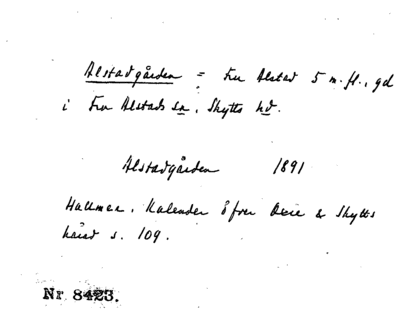 Alstadgården = Fru Alstad 5 m.fl., gd
i Fru Alstads sn, Skytts hd.
Alstadgården 1891
Hallman, Kalender öfver Oxie & Skytts
härad s. 109.
Nr 8423.